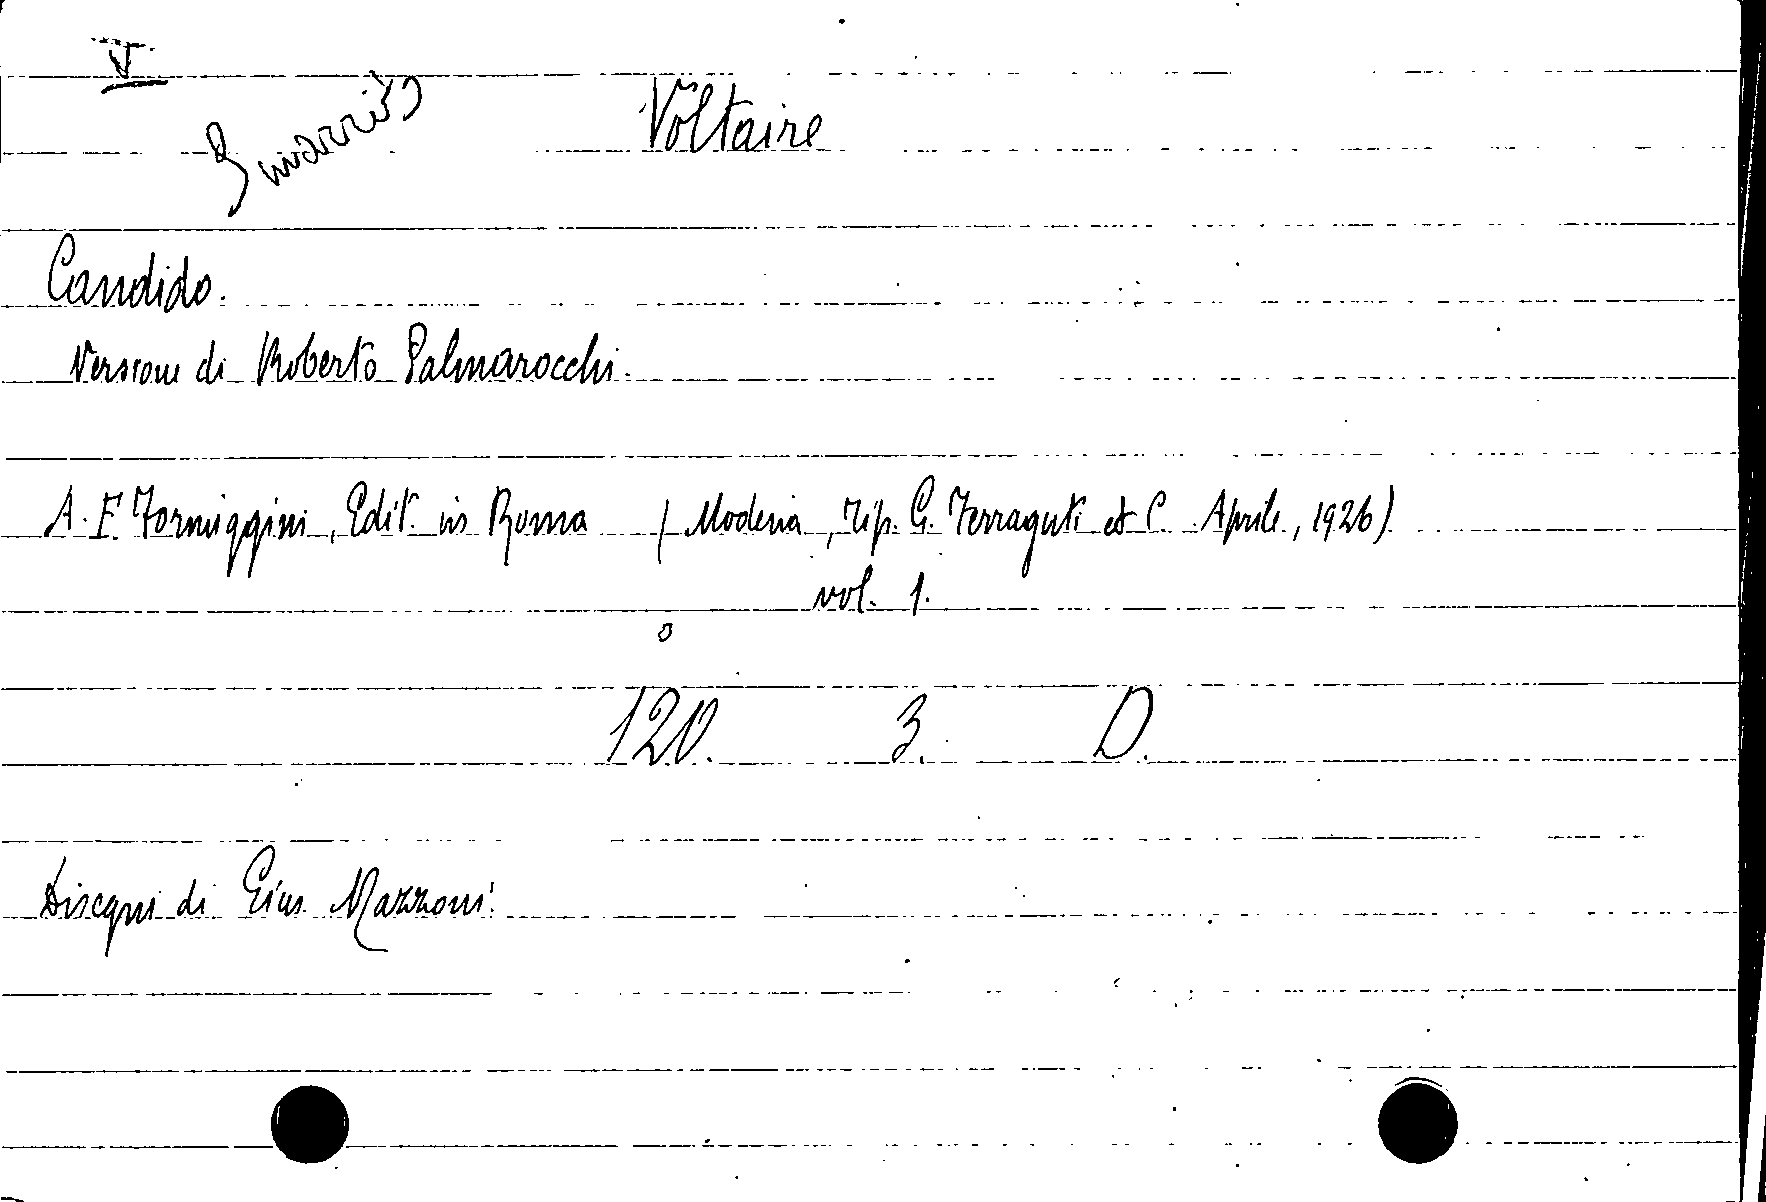 V
Smarrito
Voltaire
Candido.
Versione di Roberto Palmarocchi.
A. F. Formiggini, Edit. in Roma (Modena, Tip. G. Ferraguti et C. Aprile, 1926)
vol. 1.
120. 3. D.
Disegni di Gius Mazzoni.